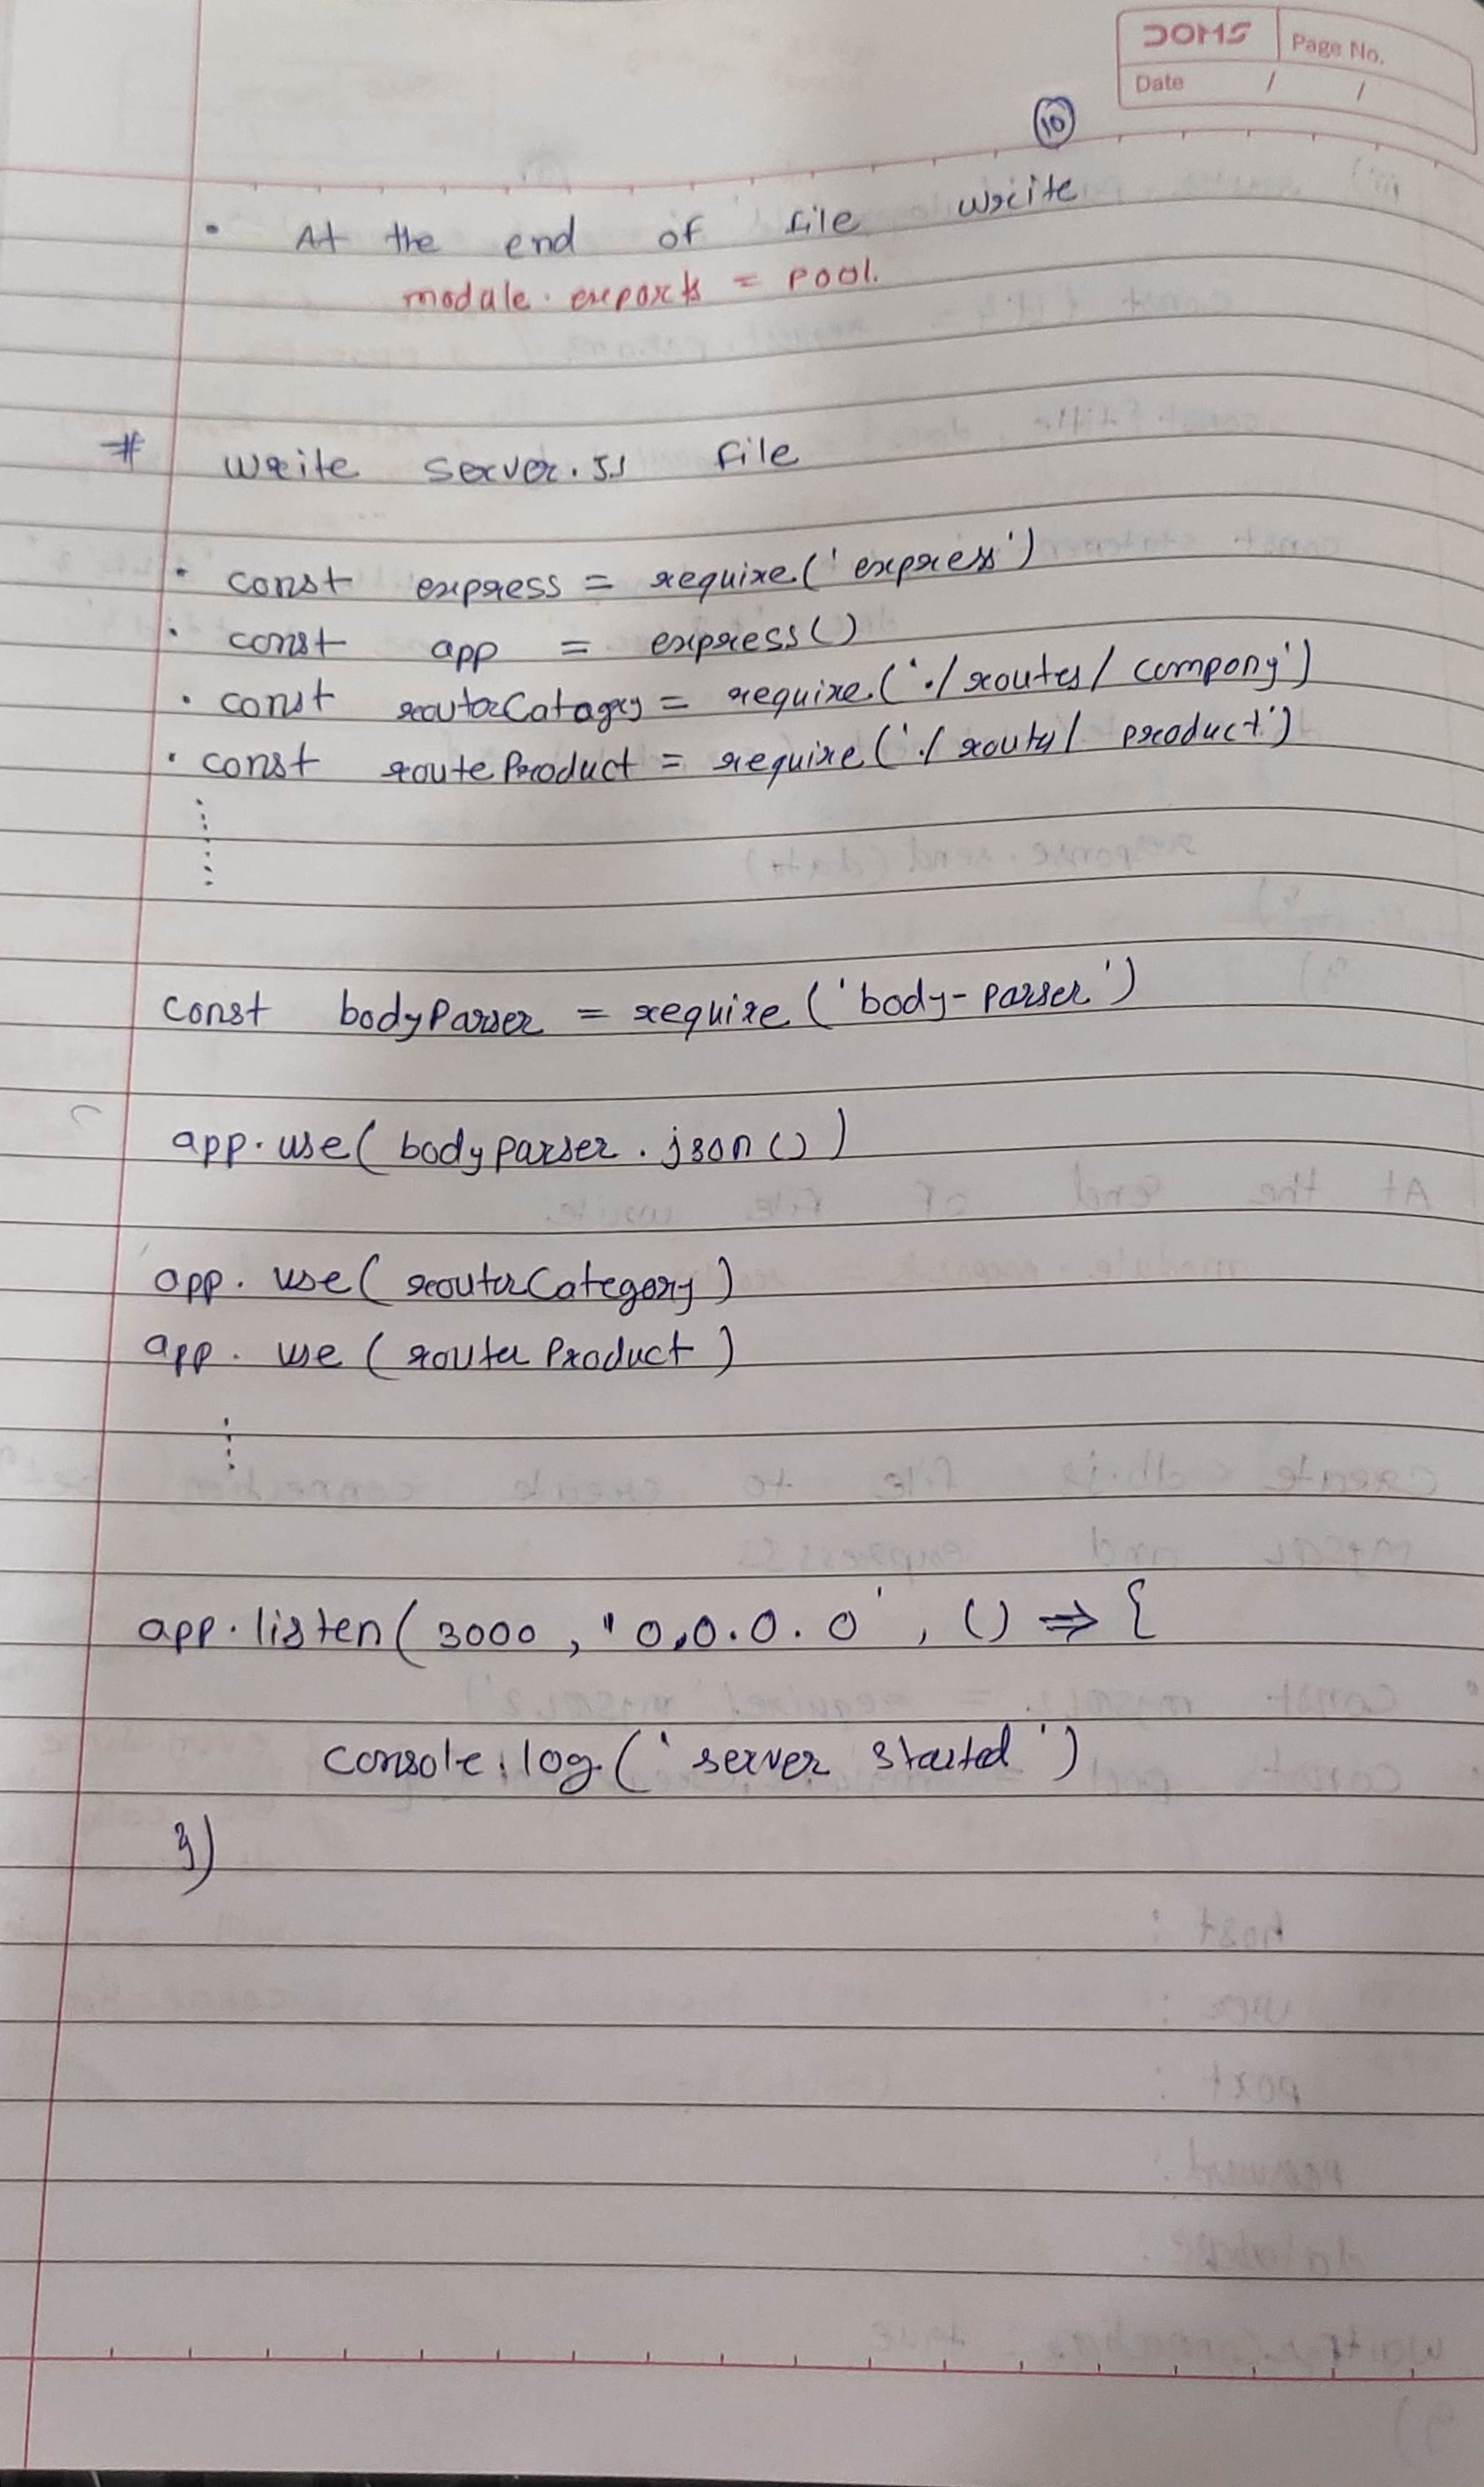 DOMS
Page No.
Date / /
10
• At the end of file write
module.exports = pool.
# write server.js file
• const express = require('express')
• const app = express()
• const routerCatagry = require('./routes/compony')
• const routeProduct = require('./routes/product')
const bodyParser = require('body-parser')
app.use(bodyparser.json())
app.use(routerCategory)
app.use(router Product)
app.listen(3000, "0.0.0.0', () => {
console.log('server started')
})